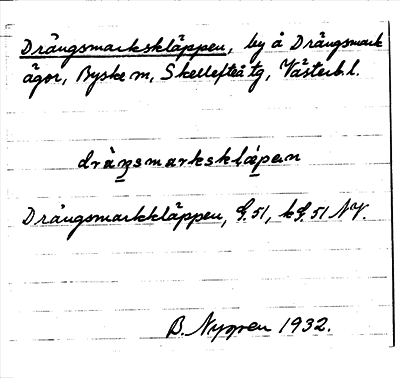 Drängsmarkskläppen, by å Drängsmark
ägor, Byske m, Skellefteå tg, Västerb. l.
drängsmarkskläpen
Drängsmarkkläppen, G. 51, k G. 51 NV.
B. Nygren 1932.